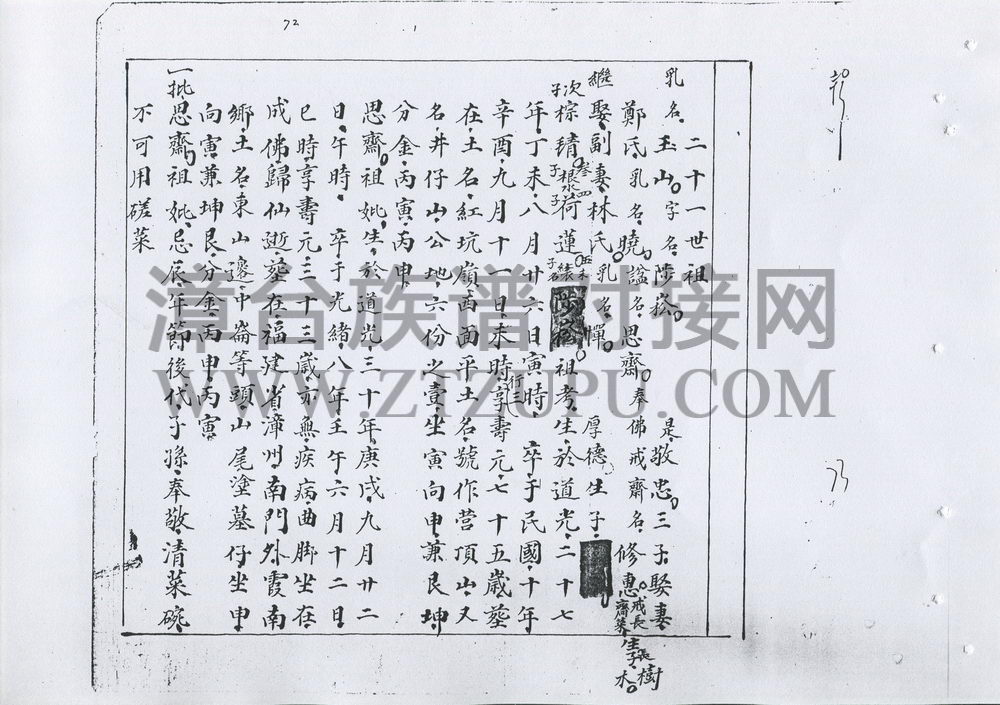 72
二十一世祖
乳名玉山字名陟崧 是敬忠三子娶妻
鄭氏乳名曉諡名思齋奉佛戒齋名修惠戒長齋菜生長子樹木
繼娶副妻林氏乳名憚 厚德生子
次子棕琦三子根水四子荷蓮五子名木 陟崧祖考生於道光二十七
年丁未八月廿六日寅時 卒于民國十年
辛酉九月十一日未時享壽元七十五歲葬
在土名紅坑嶺西面平土名號作营頂山又
名井仔山公地六份之壹坐寅向申兼艮坤
分金丙寅丙申
思齋祖妣生於道光三十年庚戌九月廿二
日午時 卒于光緒八年壬午六月十二日
巳時享壽元三十三歲亦無疾病曲脚坐在
成佛歸仙逝葬在福建省漳州南門外霞南
鄉土名東山邊中崙等頭山尾塗墓仔坐申
向寅兼坤艮分金丙申丙寅
一批思齋祖妣忌辰年節後代子孫奉敬清菜碗
不可用磋菜
73
漳台族谱对接网
WWW.ZTZUPU.COM